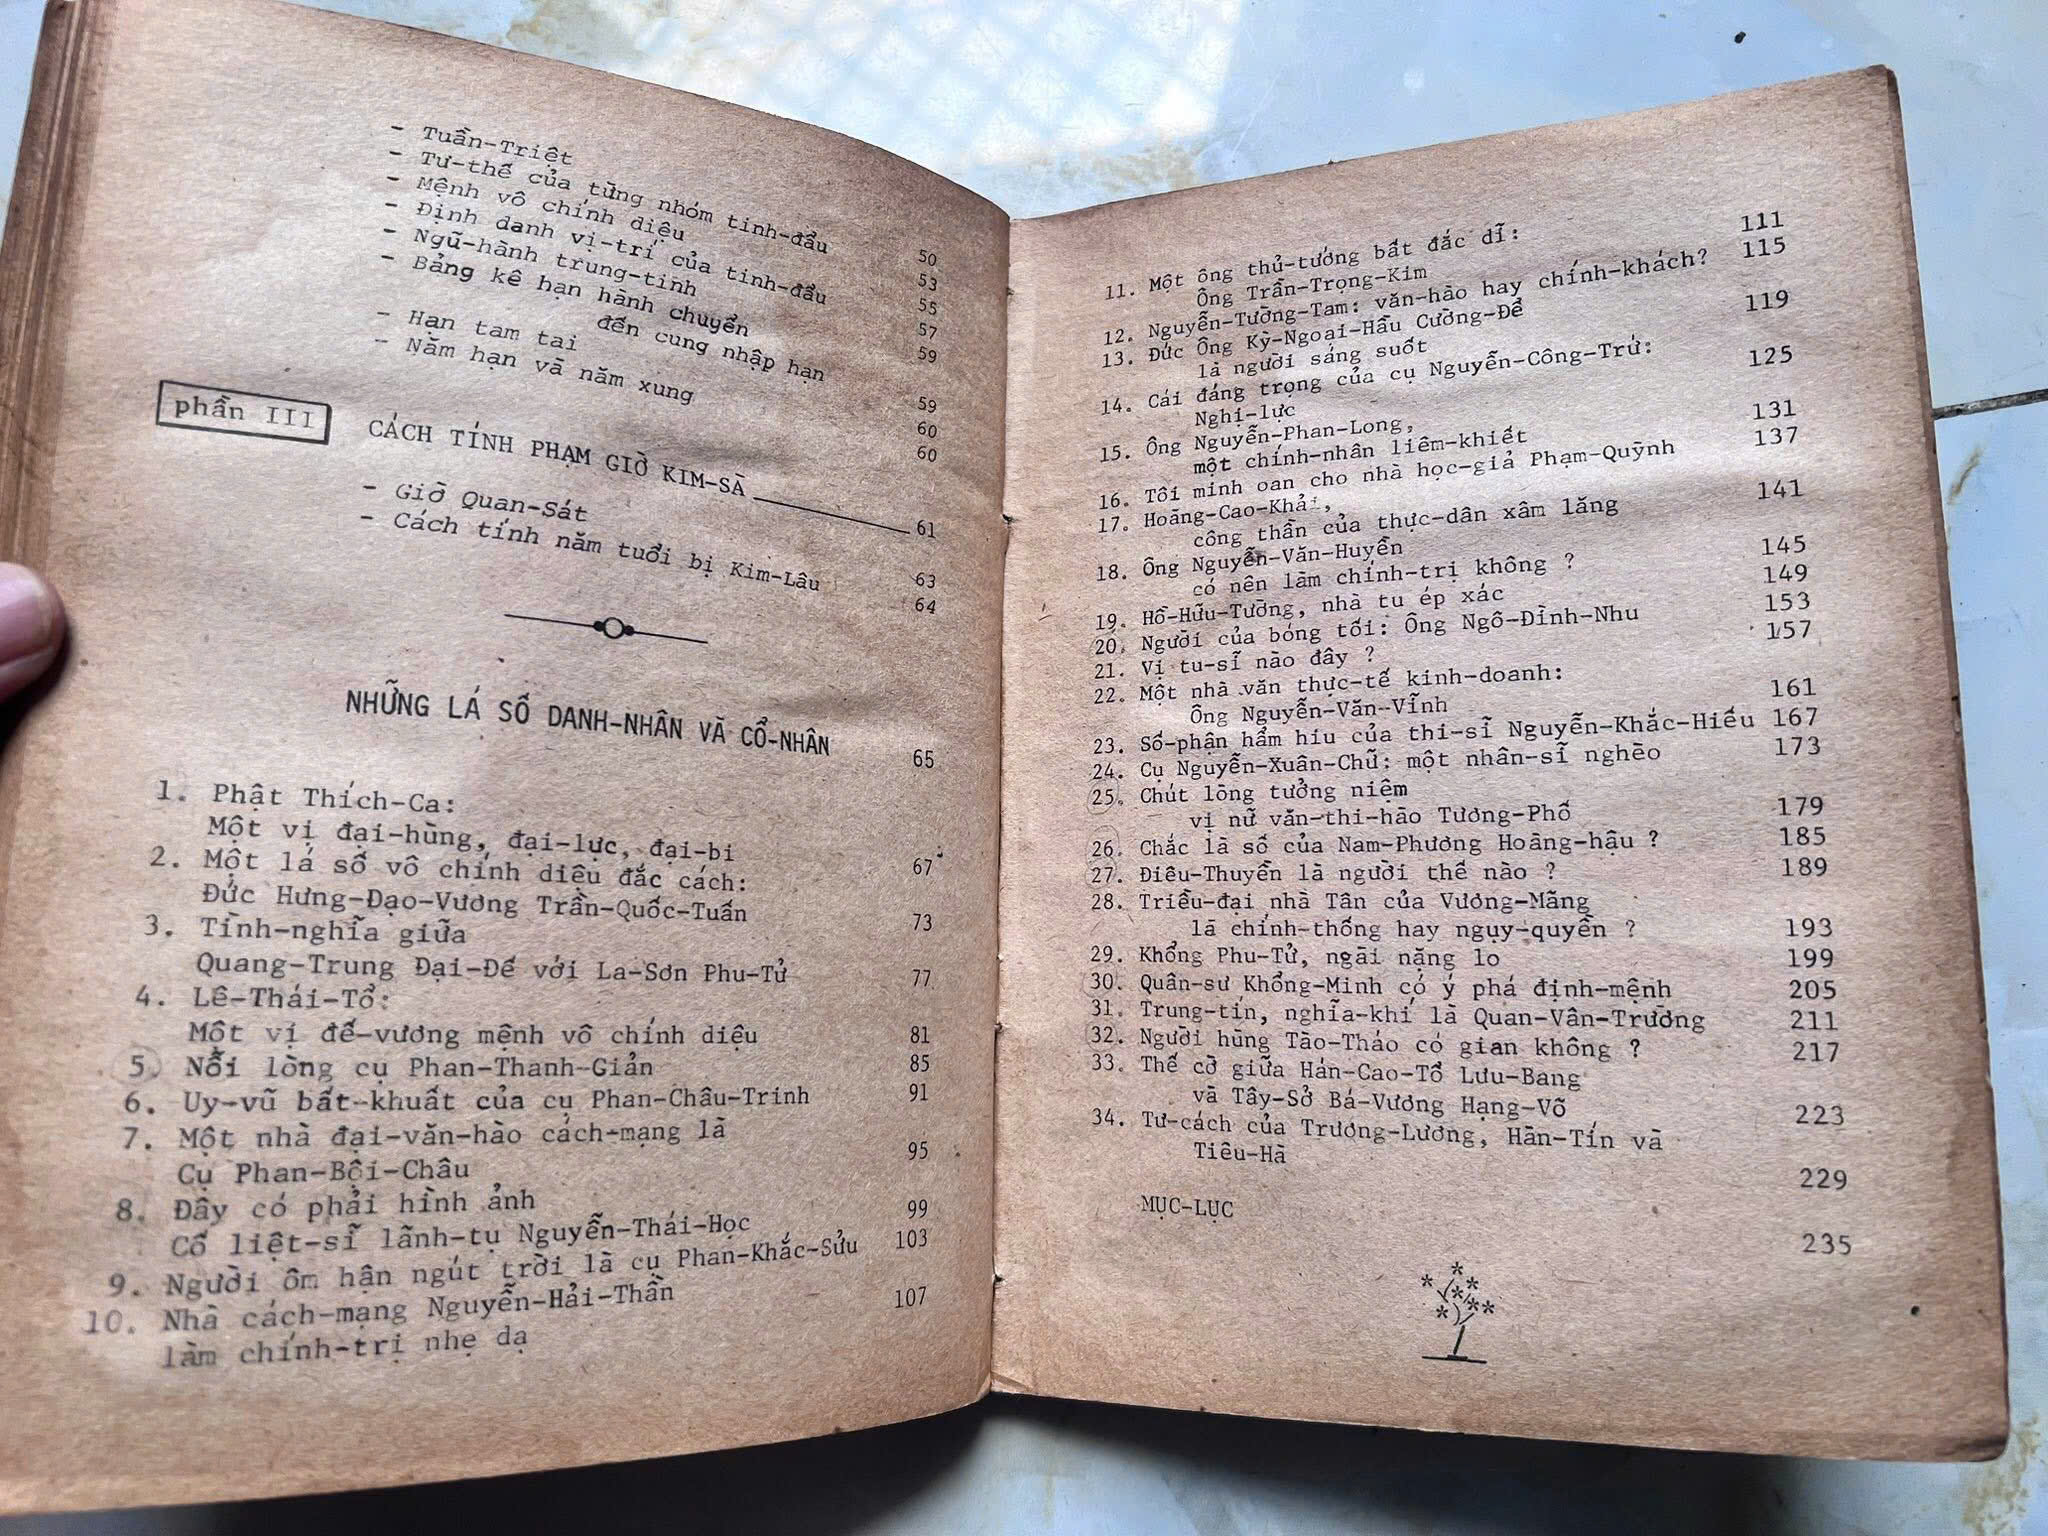 - Tuần-Triệt 50
- Tư-thế của từng nhóm tinh-đẩu 53
- Mệnh vô chính diệu 55
- Định danh vị-trí của tinh-đẩu 57
- Ngũ-hành trung-tinh 59
- Bảng kê hạn hành chuyển
đến cung nhập hạn 59
- Hạn tam tai 60
- Năm hạn và năm xung 60
phần III CÁCH TÍNH PHẠM GIỜ KIM-SÀ 61
- Giờ Quan-Sát 63
- Cách tính năm tuổi bị Kim-Lâu 64
NHỮNG LÁ SỐ DANH-NHÂN VÀ CỔ-NHÂN 65
1. Phật Thích-Ca:
Một vị đại-hùng, đại-lực, đại-bi 67
2. Một lá số vô chính diệu đắc cách:
Đức Hưng-Đạo-Vương Trần-Quốc-Tuấn 73
3. Tình-nghĩa giữa
Quang-Trung Đại-Đế với La-Sơn Phu-Tử 77
4. Lê-Thái-Tổ:
Một vị đế-vương mệnh vô chính diệu 81
5. Nỗi lòng cụ Phan-Thanh-Giản 85
6. Uy-vũ bất-khuất của cụ Phan-Châu-Trinh 91
7. Một nhà đại-văn-hào cách-mạng là
Cụ Phan-Bội-Châu 95
8. Đây có phải hình ảnh
Cố liệt-sĩ lãnh-tụ Nguyễn-Thái-Học 99
9. Người ôm hận ngút trời là cụ Phan-Khắc-Sửu 103
10. Nhà cách-mạng Nguyễn-Hải-Thần
làm chính-trị nhẹ dạ 107
11. Một ông thủ-tướng bất đắc dĩ:
Ông Trần-Trọng-Kim 111
12. Nguyễn-Tường-Tam: văn-hào hay chính-khách? 115
13. Đức Ông Kỳ-Ngoại-Hầu Cường-Để
là người sáng suốt 119
14. Cái đáng trọng của cụ Nguyễn-Công-Trứ:
Nghị-lực 125
15. Ông Nguyễn-Phan-Long,
một chính-nhân liêm-khiết 131
16. Tôi minh oan cho nhà học-giả Phạm-Quỳnh 137
17. Hoàng-Cao-Khải,
công thần của thực-dân xâm lăng 141
18. Ông Nguyễn-Văn-Huyền
có nên làm chính-trị không ? 145
19. Hồ-Hữu-Tường, nhà tu ép xác 149
20. Người của bóng tối: Ông Ngô-Đình-Nhu 153
21. Vị tu-sĩ nào đây ? 157
22. Một nhà văn thực-tế kinh-doanh:
Ông Nguyễn-Văn-Vĩnh 161
23. Số-phận hẩm hiu của thi-sĩ Nguyễn-Khắc-Hiếu 167
24. Cụ Nguyễn-Xuân-Chữ: một nhân-sĩ nghèo 173
25. Chút lòng tưởng niệm
vị nữ văn-thi-hào Tương-Phố 179
26. Chắc là số của Nam-Phương Hoàng-hậu ? 185
27. Điêu-Thuyền là người thế nào ? 189
28. Triều-đại nhà Tân của Vương-Mãng
là chính-thống hay ngụy-quyền ? 193
29. Khổng Phu-Tử, ngài nặng lo 199
30. Quân-sư Khổng-Minh có ý phá định-mệnh 205
31. Trung-tín, nghĩa-khí là Quan-Vân-Trường 211
32. Người hùng Tào-Tháo có gian không ? 217
33. Thế cờ giữa Hán-Cao-Tổ Lưu-Bang
và Tây-Sở Bá-Vương Hạng-Võ 223
34. Tư-cách của Trương-Lương, Hàn-Tín và
Tiêu-Hà 229
MỤC-LỤC 235